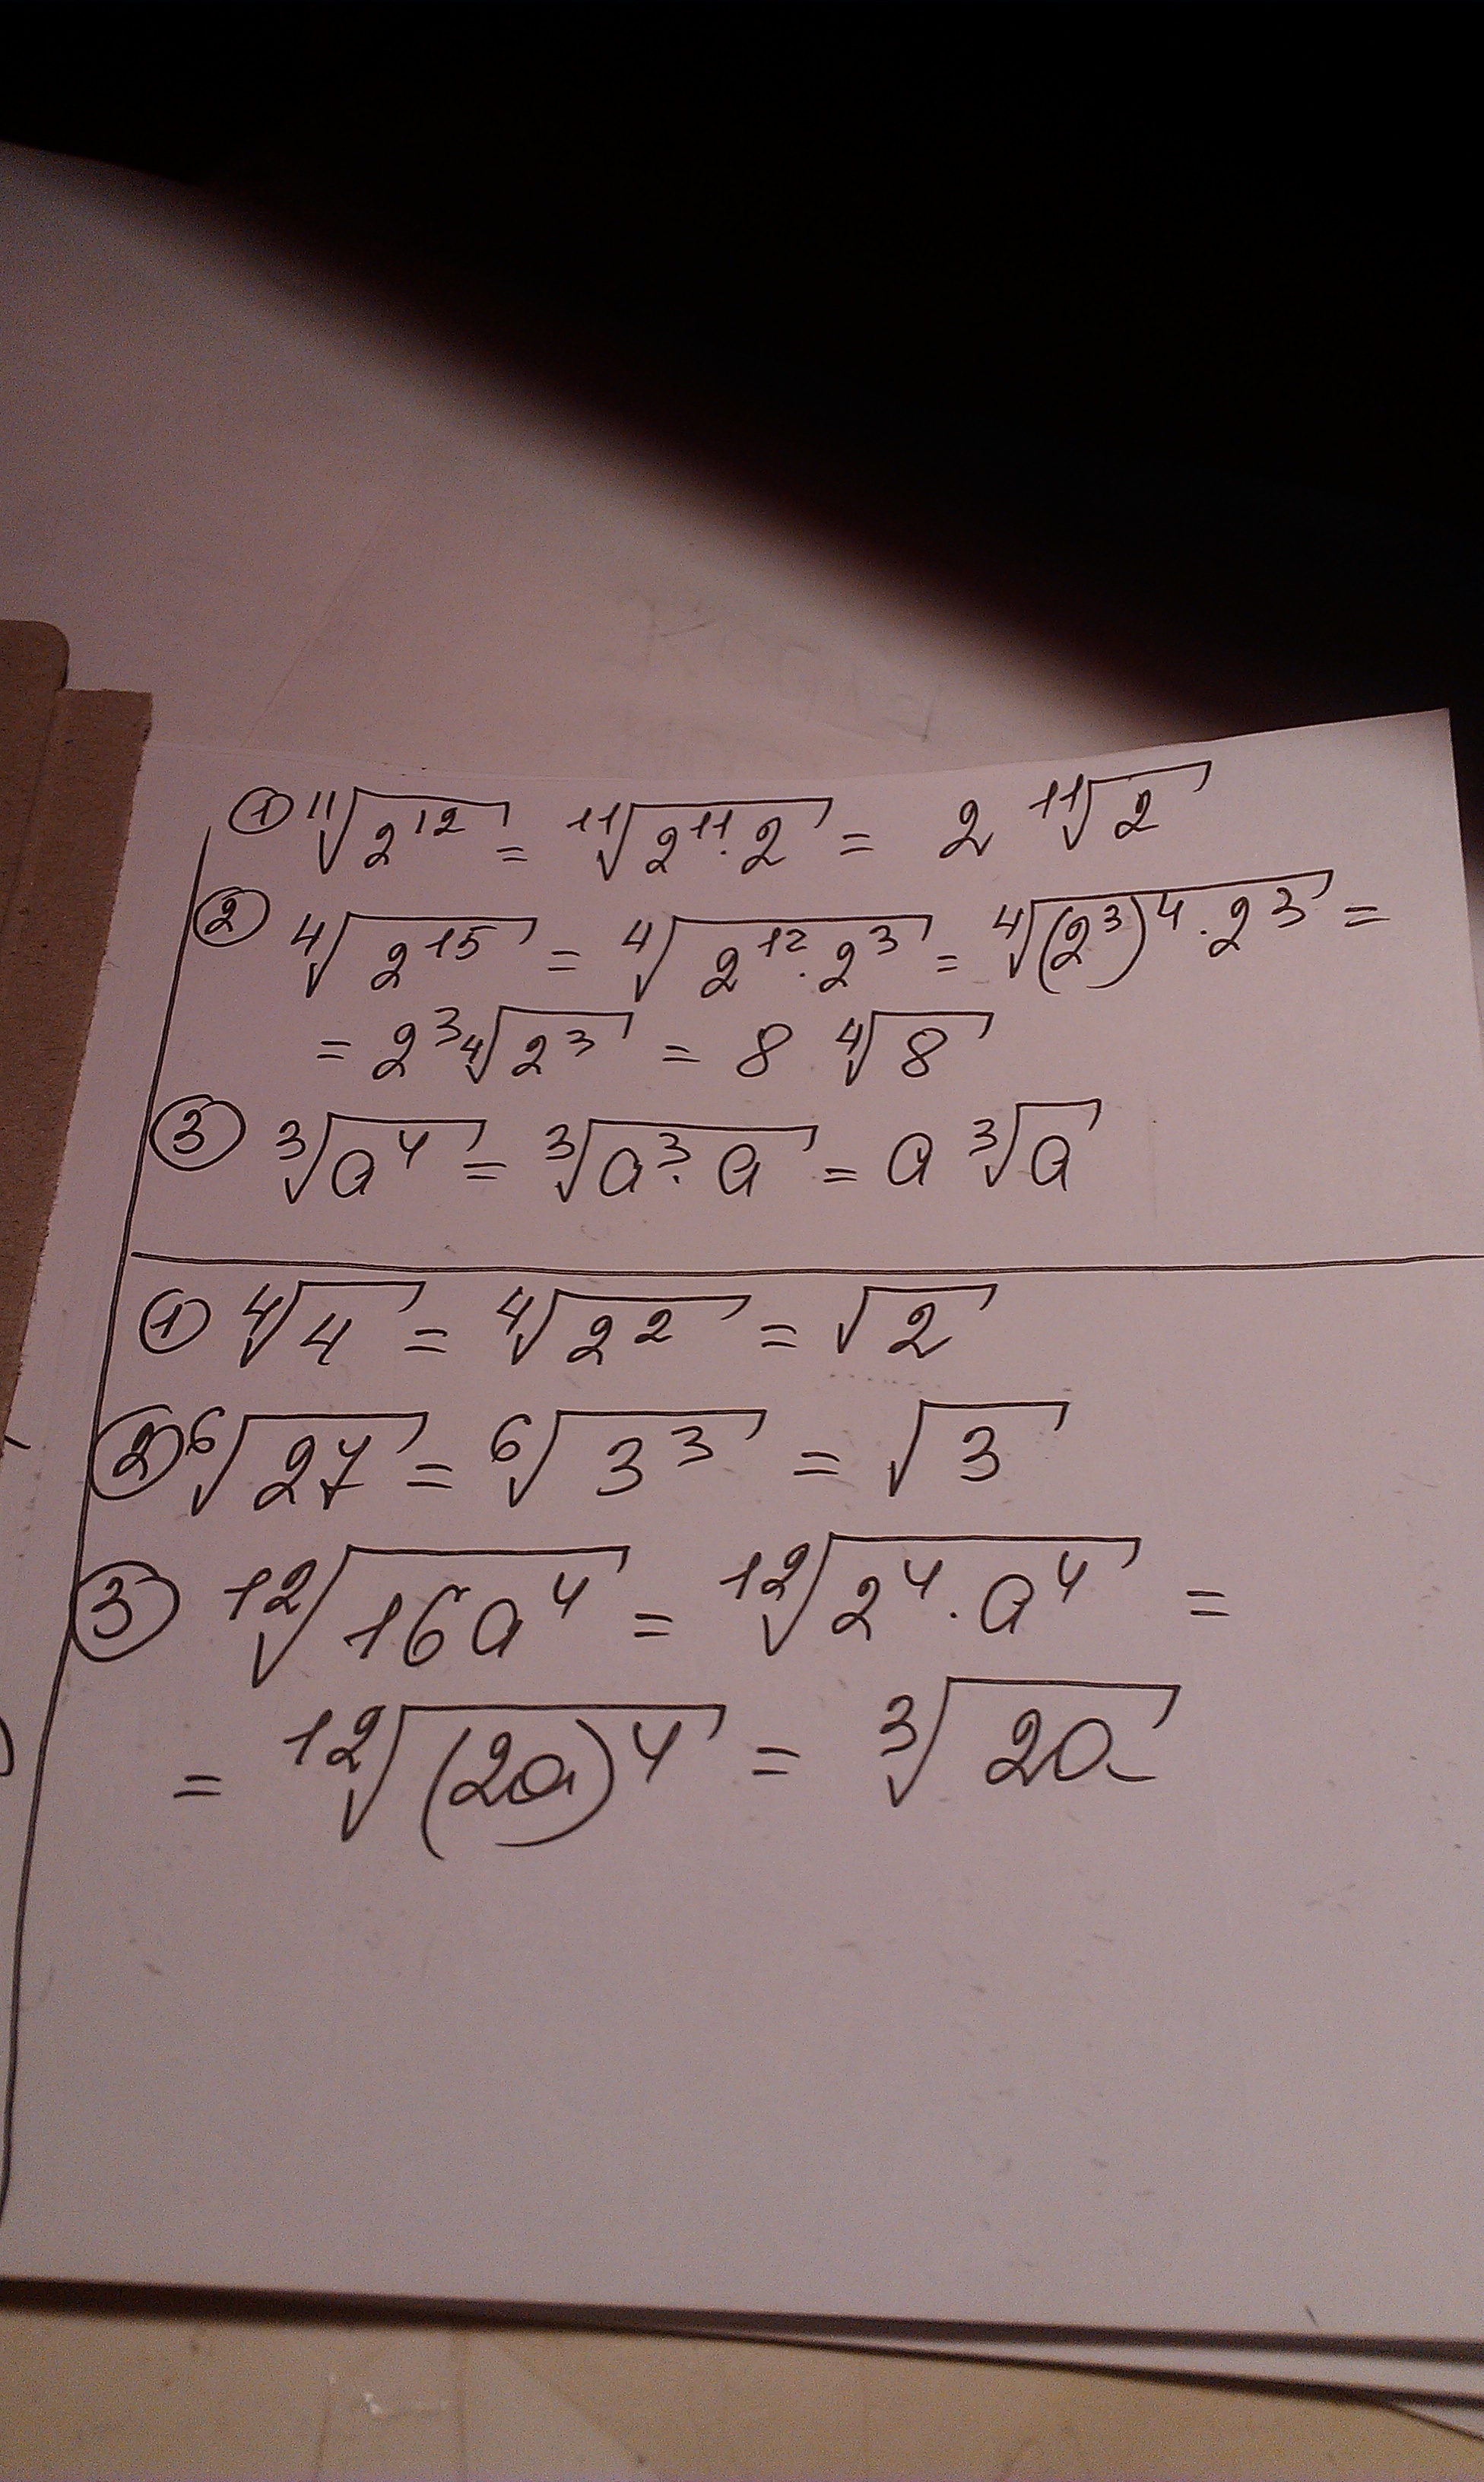 ① ¹¹√(2¹²) = ¹¹√(2¹¹·2) = 2 ¹¹√2
② ⁴√(2¹⁵) = ⁴√(2¹²·2³) = ⁴√((2³)⁴·2³) =
= 2³ ⁴√(2³) = 8 ⁴√8
③ ³√(a⁴) = ³√(a³·a) = a ³√a
① ⁴√4 = ⁴√(2²) = √2
② ⁶√27 = ⁶√(3³) = √3
③ ¹²√(16a⁴) = ¹²√(2⁴·a⁴) =
= ¹²√((2a)⁴) = ³√(2a)